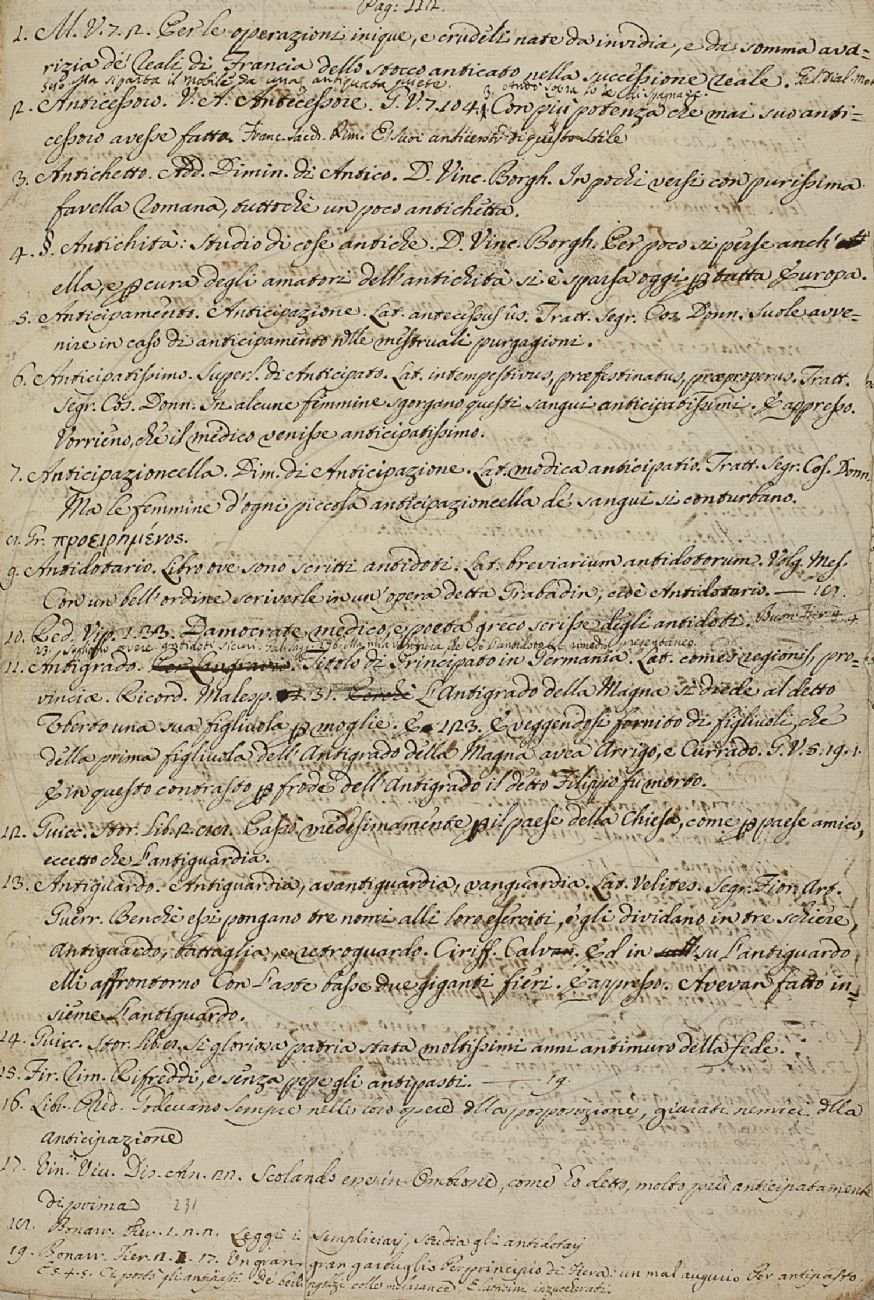 Pag: 112.
1. M. V. 7. 2. Per le operazioni inique, e crudeli nate da invidia, e da somma ava=
rizia de' Reali di Francia dello stocco anticato nella successione reale.
2. Anticessoro. V. A. Antecessore. G. V. 7. 104. 1. Con più potenza che mai suo anti=
cessoro avesse fatto. Franc. Sacch. Rim. E suoi di questo stile
3. Antichetto. Add. Dimin. di Antico. D. Vinc. Borgh. In pochi versi con purissima
favella romana, tuttochè un poco antichetta.
4. §. Antichità: Studio di cose antiche. D. Vinc. Borgh. Per poco si perse anch'
ella, e p cura degli amatori dell'antichità si è sparsa oggi p tutta Europa.
5. Anticipamento. Anticipazione. Lat. antecessus ûs. Tratt. Segr. Cos. Donn. Suole avve=
nire in caso di anticipamento nelle mestruali purgagioni.
6. Anticipatissimo. Superl. di Anticipato. Lat. intempestivus, præfestinatus, præproperus. Tratt.
Segr. Cos. Donn. In alcune femmine sgorgano questi sangui anticipatissimi. E appresso.
Vorrieno, che il medico venisse anticipatissimo.
7. Anticipazioncella. Dim. di Anticipazione. Lat. modica anticipatio. Tratt. Segr. Cos. Donn.
Ma le femmine d'ogni piccola anticipazioncella de' sangui si conturbano.
8. Gr. προειρημένος.
9. Antidotario. Libro ove sono scritti antidoti. Lat. breviarium antidotorum. Volg. Mes.
Con un bell'ordine scriverle in un'opera detta Grabadin, cioè Antidotario. — 18.
10. Red. Vip. 1. 33. Damocrate medico, e poeta greco scrisse degli antidoti. Buon. Fier. 4. 4
11. Antigrado. Titolo di Principato in Germania. Lat. comes regionis, pro=
vinciæ. Ricord. Malesp. 31. L'Antigrado della Magna si diede al detto
Uberto una sua figliuola p moglie. E 123. E veggendosi fornito di figliuoli, che
della prima figliuola dell'Antigrado della Magna avea Arrigo, e Currado. G. V. 5. 19. 1.
E in questo contrasto p frode dell'Antigrado il detto Filippo fu morto.
12. Guicc. Stor. Lib. 2. 88. Passò medesimamente p il paese della Chiesa, come p paese amico,
eccetto che l'antiguardia.
13. Antiguardo. Antiguardia, avantiguardia, vanguardia. Lat. Velites. Segr. Fior. Art.
Guerr. Benchè essi pongano tre nomi alli loro eserciti, e gli dividano in tre schiere,
Antiguardo, battaglia, e retroguardo. Ciriff. Calvan. Ed in su l'antiguardo
elli affrontorno Con l'aste basse due giganti fieri. E appresso. Avevan fatto in=
sieme l'antiguardo.
14. Guicc. Stor. Lib. Si gloriava patria stata moltissimi anni antimuro della fede.
15. Fir. Rim. Rifreddi, e senza pepe gli antipasti. — 19.
16. Libr. Red. Godevano sempre nelle loro opere della posposizione, giurati nemici della
Anticipazione
17. Vin. Viv. Dis. An. 22. Scolando essi in Ombrone, come ho detto, molto più anticipatamente
di prima 231
18. Bonarr. Fier. 1. 2. 2. Leggi i Sempliciarj, studia gli antidotarj
19. Bonarr. Fier. 2. 17. Un gran, gran garbuglio Per principio di Fiera: un mal augurio Per antipasto